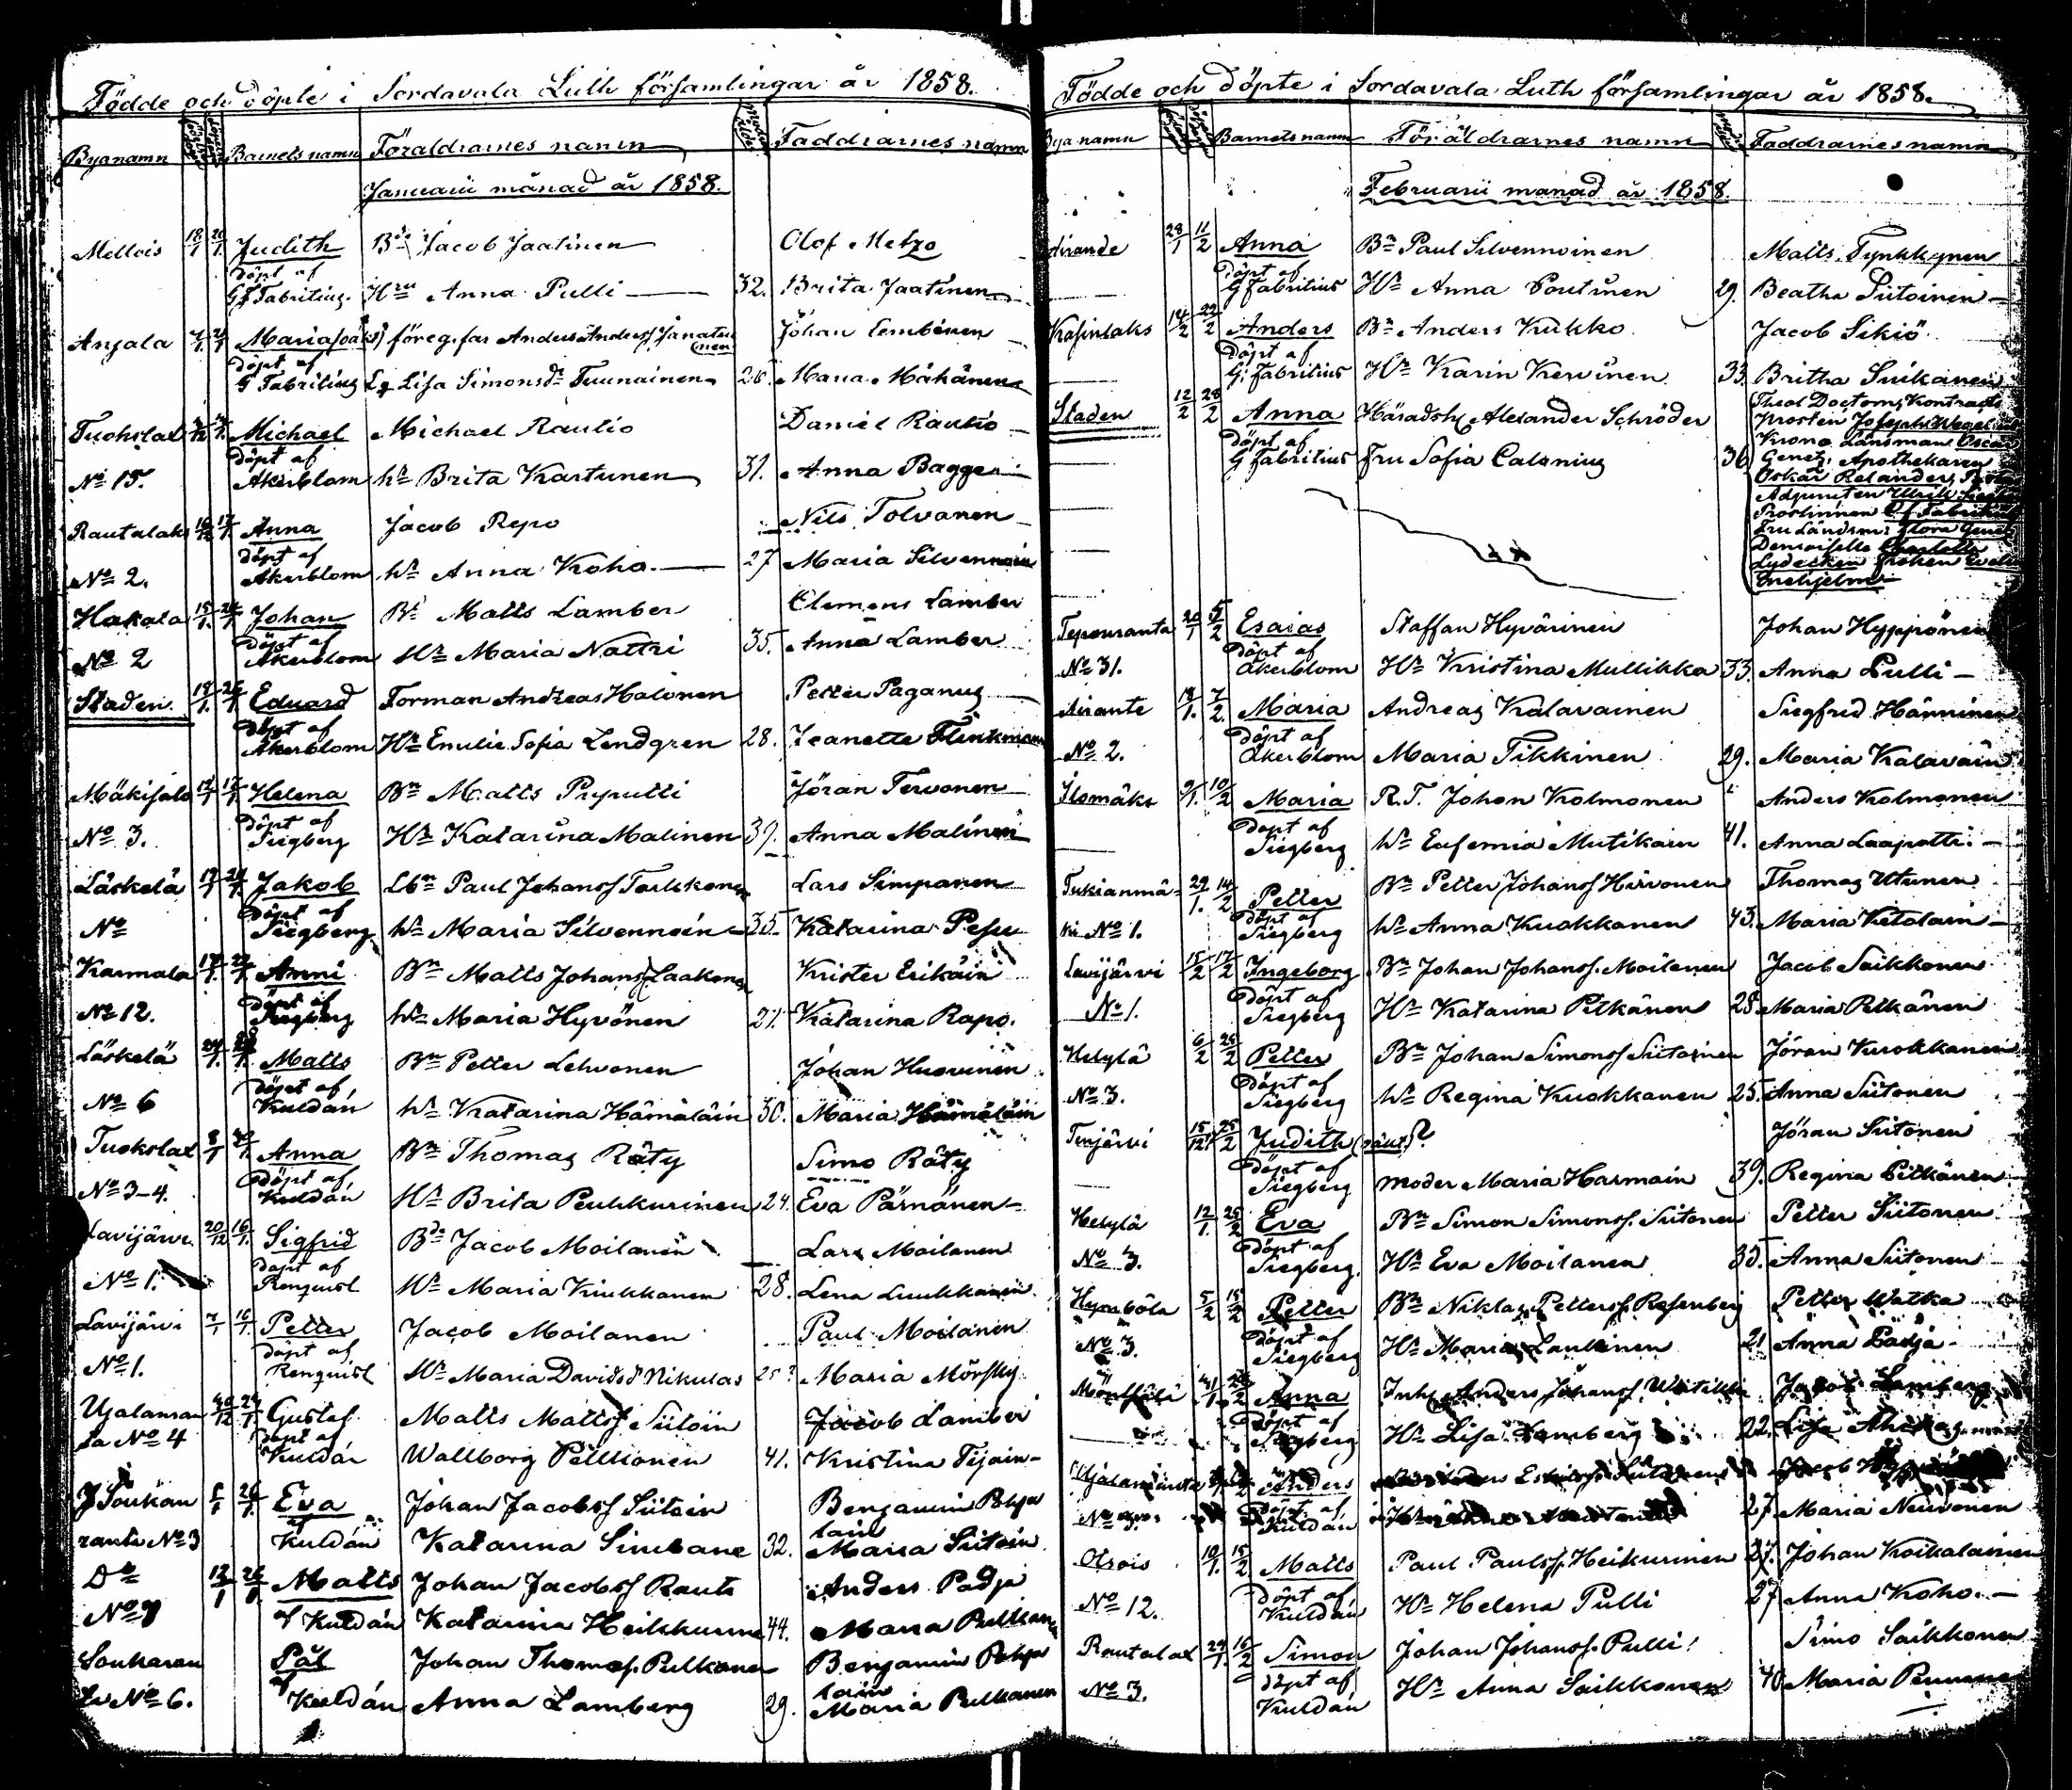 Födde och döpte i Sordavala Luth församlingar år 1858.
Byanamn Barnets namn Föräldrarnes namn Faddrarnes namn
Januarii månad år 1858.
Mellois 18/1 20/1 Judith Bd Jacob Jaatinen Olof Metzo
Döpt af
G F Fabritius. Hru Anna Pulli 32. Brita Jaatinen
Anjala Maria föreg. far Anders Anders Johan Lembinen
döpt af
G Fabritius Lisa Simonsdr Tuunainen 26. Maria Mähönen
Tuokslax Michael Michael Rautio Daniel Rautio
döpt af
No 15. Akerblom hu Brita Kartunen 31. Anna Bagge
Rautalaks Anna Jacob Repo Nils Tolvanen
döpt af
No 2. Akerblom hu Anna Koho 27 Maria Silvennoin
Hakala 15/1 Johan Bd Matts Lamber Clemens Lamber
Döpt af
No 2 Akerblom Hu Maria Nattri 35. Anna Lamber
Staden Eduard Forman Andreas Halonen Petter Paganus
döpt af
Akerblom Hu Emilie Sofia Lendgren 28. Jeanette Flinkman
Mäkisalo Helena Bn Matts Pyrutti Jöran Tervonen
döpt af
No 3. Siegberg Hu Katarina Malinen 39. Anna Malinen
Läskelä Jakob Lbn Paul Johanss Tarkkonen Lars Simpanen
Döpt af
No Siegberg hu Maria Silvennoin 35 Katarina Pesu
Karmala Anni Bn Matts Johanss Laakonen Krister Erikäin
Döpt af
No 12. Siegberg hu Maria Hyvönen 21. Katarina Rapo.
Läskelä Matts Bn Petter Lehvonen Johan Huovinen
Döpt af
No 6 Kuldán hu Katarina Hämäläin 30. Maria Hämäläin
Tuokslax Anna Bn Thomas Räty Simo Räty
döpt af
No 3-4. Kuldán Hu Brita Peuhkurinen 24. Eva Pärnänen
Lavijärvi 20/12 16/1 Sigfrid Bd Jacob Moilanen Lars Moilanen
Döpt af
No 1. Renquist Hu Maria Kiukkanen 28. Lena Luukkanen
Lavijärvi 7/1 16/1 Petter Jacob Moilanen Paul Moilanen
döpt af
No 1. Renquist Hu Maria Davidsd Nikulas 25? Maria Mörsky
Gustaf Matts Mattss Siitoin Jacob Lamber
döpt af
No 4 Kuldán Wallborg Pelttonen 41. Kristina Tijain
Soukan Eva Johan Jacobss Siitoin Benjamin Pohja
lain
ranta No 3 Kuldán Katarina Simbane 32. Maria Siitoin
Do Matts Johan Jacobss Rauts Anders Padja
af Kuldán Katarina Heikkurine 44. Maria Pulkkanen
Soukaran Pål Johan Thomass. Pulkanen Benjamin Pohja
lain
No 6. af Kuldán Anna Lamberg 29. Maria Pulkanen
Födde och döpte i Sordavala Luth församlingar år 1858.
Bya namn Barnets namn Föräldrarnes namn Faddrarnes namn
Februarii månad år 1858.
Airande 28/1 11/2 Anna Bn Paul Silvennoinen Matts Tynkkynen
döpt af
G Fabritius Hu Anna Poutinen 29. Beatha Siitoinen
14/2 22/2 Anders Bn Anders Kukko Jacob Sikiö
Döpt af
G. Fabritius Hu Karin Kervinen 33. Britha Suikanen
Staden 12/2 28/2 Anna Häradsh Alexander Schröder Theol Doctorn, Kontrakts
Prosten Joseph Wegelius
Döpt af Krono Länsman Oscar
G Fabritius Fru Sofia Calonius 36 Genetz, Apothekaren
Oskar Relander,
Adjuncten Ulrik
Prostinnan Fabritius
Fru Länsm: Flora Genetz
Demoiselle Charlotta
Lydecken Fröken
Gnehjelm
20/1 5/2 Esaias Staffan Hyvärinen Johan Hyppönen
döpt af
No 31. Akerblom Hu Kristina Mullikka 33. Anna Pulli
Airante 7/2 Maria Andreas Kalavainen Siegfred Hänninen
döpt af
No 2. Akerblom Maria Tikkinen 29. Maria Kalavain
Ilomäks 9/1. 10/2 Maria R. T. Johan Kolmonen Anders Kolmonen
döpt af
Siegberg hu Eufemia Mutikain 41. Anna Laapotti
Tukianmä- 29/1. 14/2 Petter Bn Petter Johanss Hirvonen Thomas Utunen
Döpt af
ki No 1. Siegberg hu Anna Kuokkanen 43. Maria Ketolain
Lavijärvi 15/2 17/2 Ingeborg Bn Johan Johanss. Moilanen Jacob Saikkonen
Döpt af
No 1. Siegberg Hu Katarina Pitkänen 28. Maria Pitkänen
Helylä 6/2 25/2 Petter Bn Johan Simonss Siitoinen Jöran Kuokkanen
Döpt af
No 3. Siegberg hu Regina Kuokkanen 25. Anna Siitonen
Tenjärvi 15/12 25/2 Judith Jöran Siitonen
Döpt af
Siegberg moder Maria Harmain 39. Regina Pitkänen
Helylä 12/1. 25/2 Eva Bn Simon Simonss. Siitonen Petter Siitonen
döpt af
No 3. Siegberg. Hu Eva Moilanen 35. Anna Siitonen
Hymböla 5/2 15/2 Petter Bn Niklas Petterss. Rosenberg Petter Watka
döpt af
No 3. Siegberg Hu Maria Laukinen 21 Anna Padja
Anna Inh Anders Johanss. Jacob Lamberg
Döpt af
Siegberg Hu Lisa Lamberg 22. Lisa
Anders Jacob
Döpt af
Kuldán 27 Maria Neuvonen
Otsois 10/1. 15/2 Matts Paul Paulss. Heikurinen 27. Johan Koikalainen
Döpt af
No 12. Kuldán Hu Helena Pulli 27 Anna Koho.
Rautalax 24/1. 16/2 Simon Johan Johanss. Pulli Simo Saikkonen
döpt af
No 3. Kuldán Hu Anna Saikkonen 40 Maria